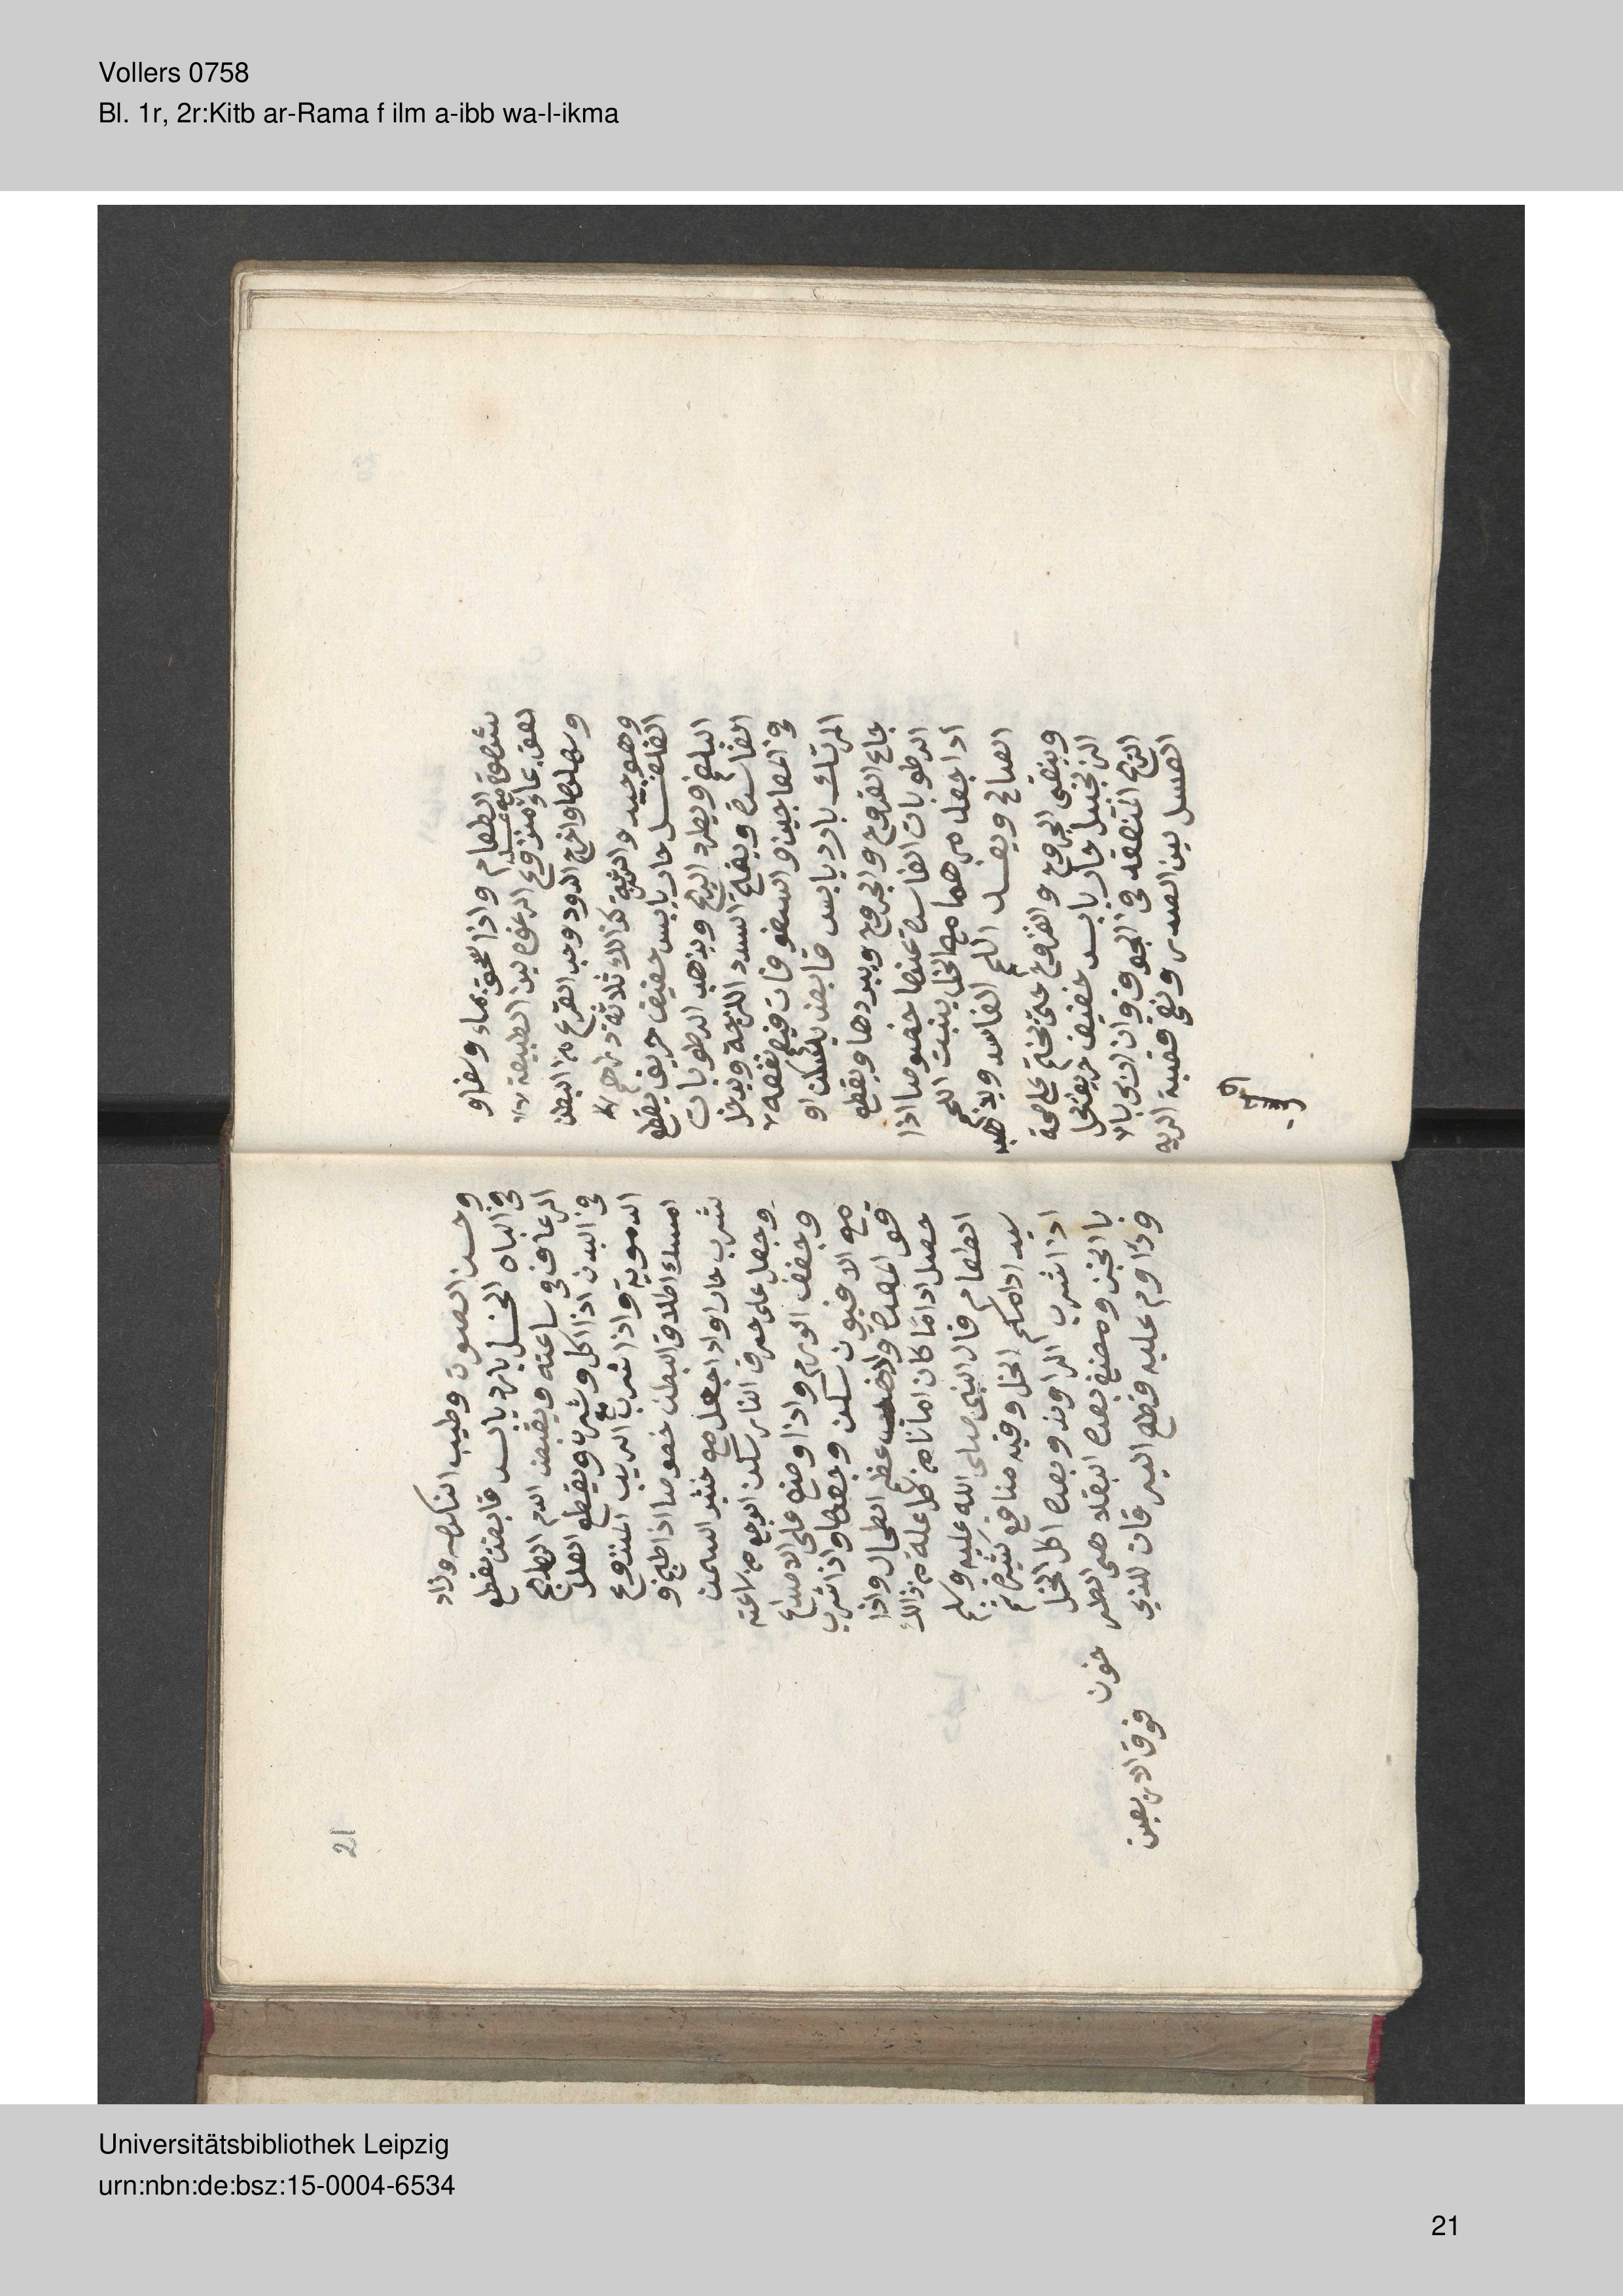 Vollers 0758
Bl. 1r, 2r:Kitb ar-Rama f ilm a-ibb wa-l-ikma
شهوة الطعام واذا سحق بماء وسفاو
لعق بماء منزوع الرغوة لين الطبيعة
وسهلها واخرج الدود وحب القرع من البطن
وهو جيد والشربة كذالك ثلاثة دراهم
الفلفل حار يابس خفيف حريف يقطع
البلغم ويطرد الريح ويذهب الرطوبات
الفاسدة ويفتح السدد اللزجة ويدخل
في المعاجين والسفوفات فيعم نفعه
المرتك بارد يابس قابض يسكن او
جاع القروح والجروح ويبردها ويقطع
الرطوبات الفاسدة عنها خصوصا اذا
اذا جعل مرهما مع الخل ينبت اللحم
الصالح ويفسد اللحم الفاسد ويذهب
وينقى الجروح والقروح حتى تختم على صحة
الزنجبيل حار يابس خفيف حريف يحل
الريح المنعقد في الجوف وان ربي بالا
العسل لين الصدر ونقى قصبة الرية
21
وحسن الصوت وطيب النكهه وزاد
في الباه الخل بارد يابس قابض يقطع
الرعاف في ساعته ويقبض الدم الهايج
في البدن اذا اكل وشرب ويقطع العلل
الدموية واذا شرب مع الزبيب المنزوع
امسك اطلاق البطن خصوصا اذا طبخ و
شرب حارا واذا جعل مع خثير السمن
وجعل على حرق النار سكن الوجع من ساعته
وجفف الورم واذا وضع على الاصداغ
مع الافيون سكن وجعها واذا شرب
قو المعدة عظم الطحال واذا
جعل اداما كان امانا من كل علة من ذالك
الطعام قال النبي صلى الله عليه وسلم
سيد ادامكم الخل وفيه منافع كثيرة
اذا شرب الراوند وبعده اكل الخل
با الخبز ومضغ بعده البقلا هى الطر خون
وداوم عليه قطع اليرقان للذي فوق الاربعين
Universitätsbibliothek Leipzig
urn:nbn:de:bsz:15-0004-6534
21